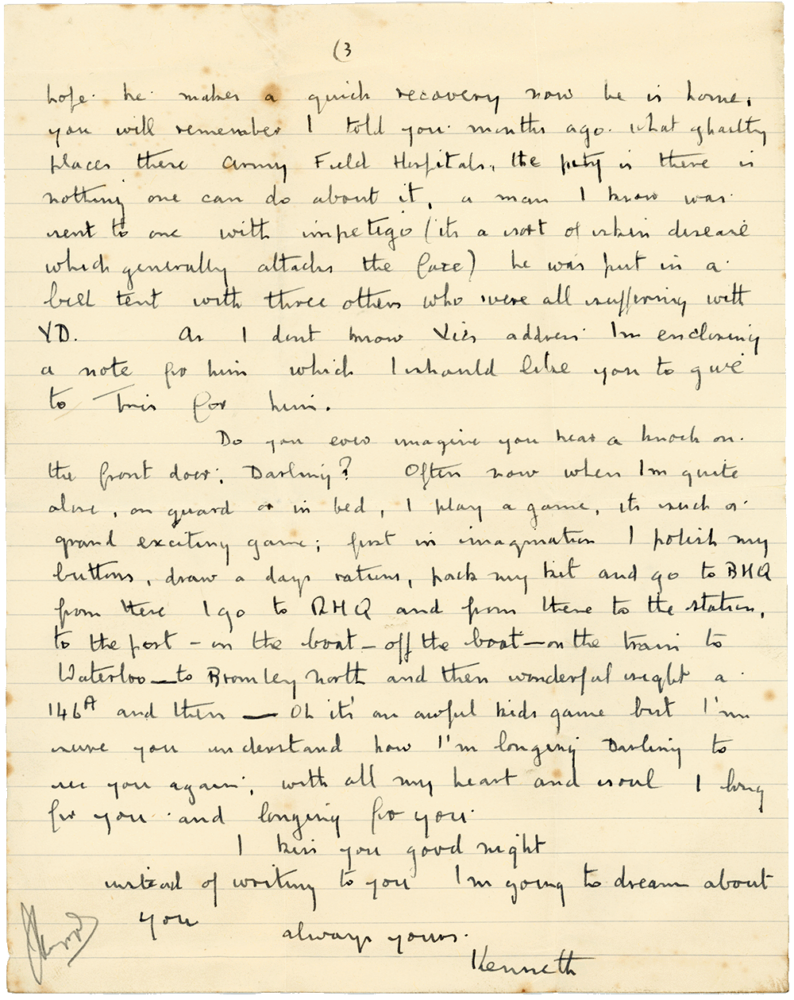 (3
hope he makes a quick recovery now he is home,
you will remember I told you months ago what ghastly
places these Army Field Hospitals, the pity is there is
nothing one can do about it, a man I know was
sent to one with impetigo (its a sort of skin disease
which generally attacks the face) he was put in a
bell tent with three others who were all suffering with
VD. As I dont know Vics address Im enclosing
a note for him which I should like you to give
to for him.
Do you ever imagine you hear a knock on
the front door, Darling? Often now when Im quite
alone, on guard or in bed, I play a game, its such a
grand exciting game; first in imagination I polish my
buttons, draw a days rations, pack my kit and go to BHQ
from there I go to RHQ and from there to the station,
to the port - on the boat - off the boat - on the train to
Waterloo - to Bromley North and then wonderful sight a
146A and then - Oh it's an awful kids game but I'm
sure you understand how I'm longing Darling to
see you again, with all my heart and soul I long
for you and longing for you.
I kiss you good night
instead of writing to you I'm going to dream about
you
always yours.
Kenneth